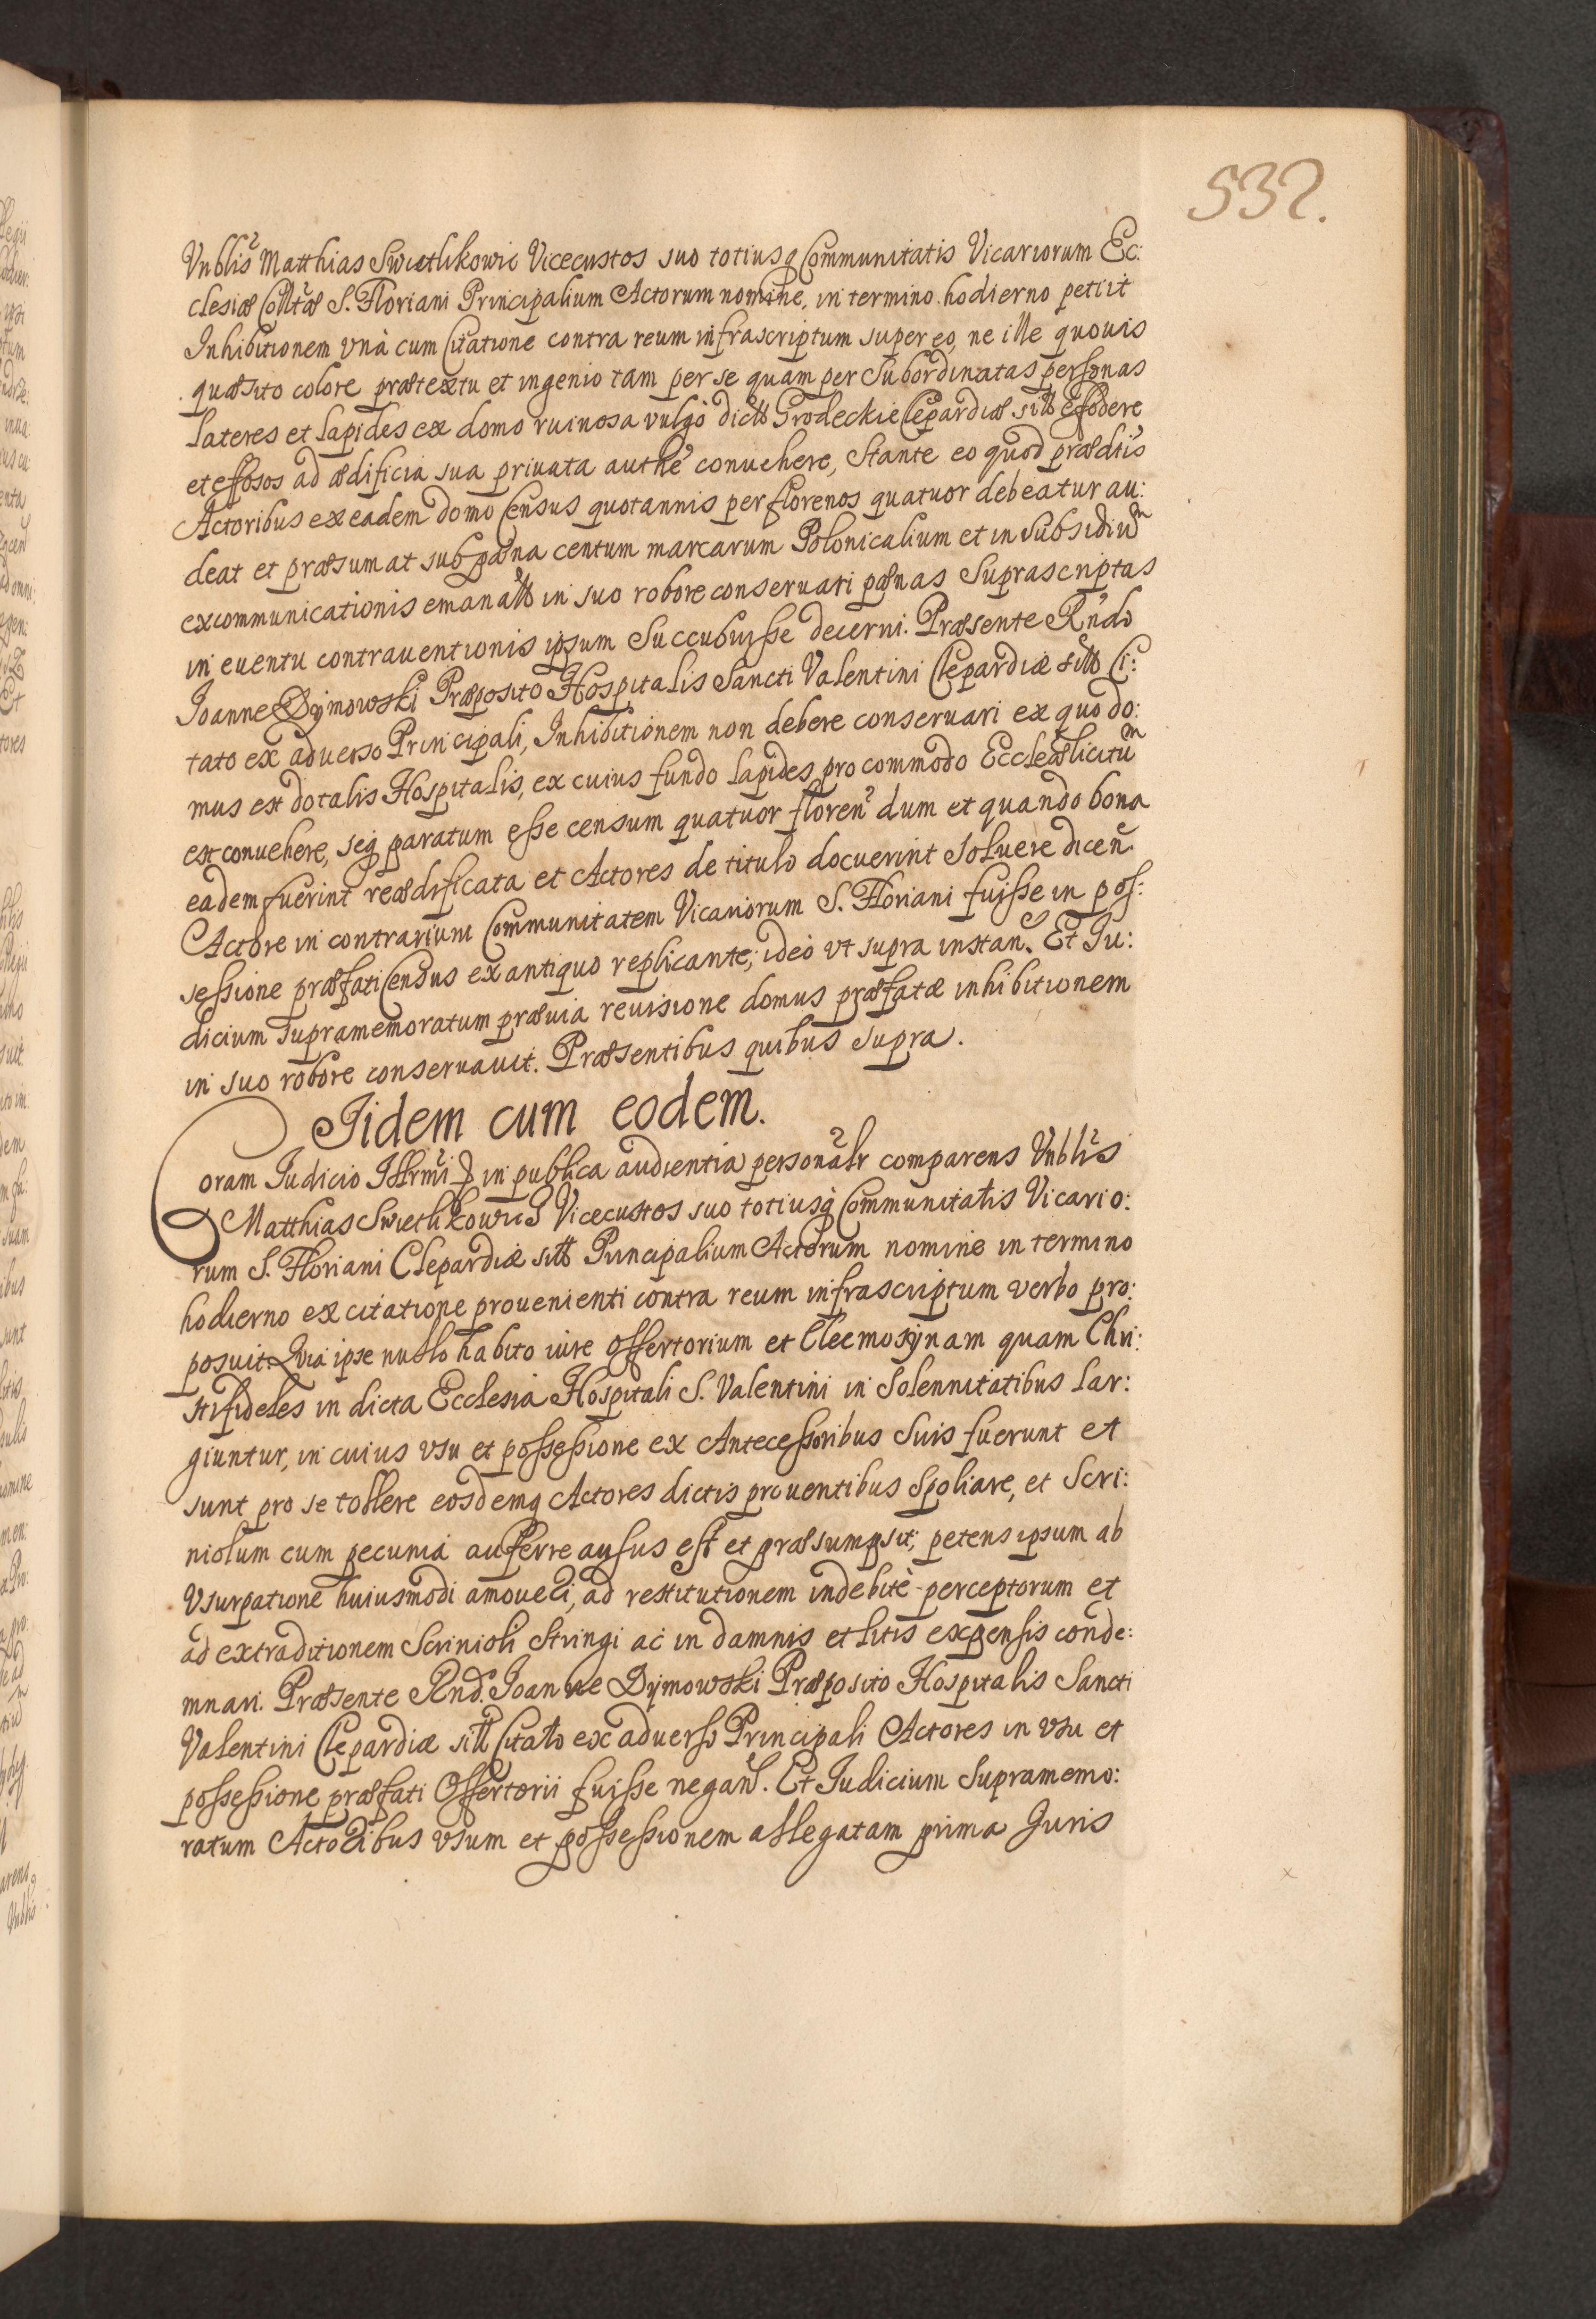 532.
Vnblis Matthias Swietlikowic Vicecustos suo totiusq Communitatis Vicariorum Ec:
clesiæ Colltæ S. Floriani Principalium Actorum nomine, in termino hodierno petiit
Inhibitionem vnà cum Citatione contra reum infrascriptum super eo, ne ille quouis
quæsito colore prætextu et ingenio tam per se quam per Subordinatas personas
Lateres et Lapides ex domo ruinosa vulgò dicta Grodeckie Clepardiæ sita effodere
et effosos ad ædificia sua priuata authe conuehere, Stante eo quod prædtis
Actoribus ex eadem domo Census quotannis per florenos quatuor debeatur au:
deat et præsumat sub pæna centum marcarum Polonicalium et in Subsidium
excommunicationis emanatto in suo robore conseruari pænas Suprascriptas
in euentu contrauentionis ipsum Succubuisse decerni. Præsente Rndo
Ioanne Dÿmowski Præposito Hospitalis Sancti Valentini Clepardiæ sitto Ci:
tato ex aduerso Principali, Inhibitionem non debere conseruari ex quo do:
mus est dotalis Hospitalis, ex cuius fundo Lapides pro commodo Ecclesiæ licitum
est conuehere, seq paratum esse censum quatuor floren dum et quando bona
eadem fuerint reædificata et Actores de titulo docuerint Soluere dicen.
Actore in contrarium Communitatem Vicariorum S. Floriani fuisse in pos:
sessione præfati Census ex antiquo replicante; ideò vt supra instan. Et Iu:
dicium supramemoratum præuia reuisione domus præfatæ inhibitionem
in suo robore conseruauit. Præsentibus quibus supra.
Iidem cum eodem.
Coram Iudicio Illrmi D in publica audientia personalr comparens Vnblis
Matthias Swietlikowic Vicecustos suo totiusq Communitatis Vicario:
rum S. Floriani Clepardiæ sitt Principalium Actorum nomine in termino
hodierno ex citatione prouenienti contra reum infrascriptum verbo pro:
posuit. Quia ipse nullo habito iure Offertorium et Eleemosynam quam Chri:
stifideles in dicta Ecclesia Hospitali S. Valentini in Solennitatibus Lar:
giuntur, in cuius vsu et possessione ex Antecessoribus Suis fuerunt et
sunt pro se tollere eosdemq Actores dictis prouentibus Spoliare, et Scri:
niolum cum pecunia auferre ausus est et præsumpsit; petens ipsum ab
Vsurpatione huiusmodi amoueri, ad restitutionem indebitè perceptorum et
ad extraditionem Scrinioli Stringi ac in damnis et Litis expensis conde:
mnari. Præsente Rnd. Ioanne Dÿmowski Præposito Hospitalis Sancti
Valentini Clepardiæ sitt Citato ex aduerso Principali Actores in vsu et
possessione præfati Offertorii fuisse negan. Et Iudicium Supramemo:
ratum Actoribus vsum et possessionem allegatam prima Iuris